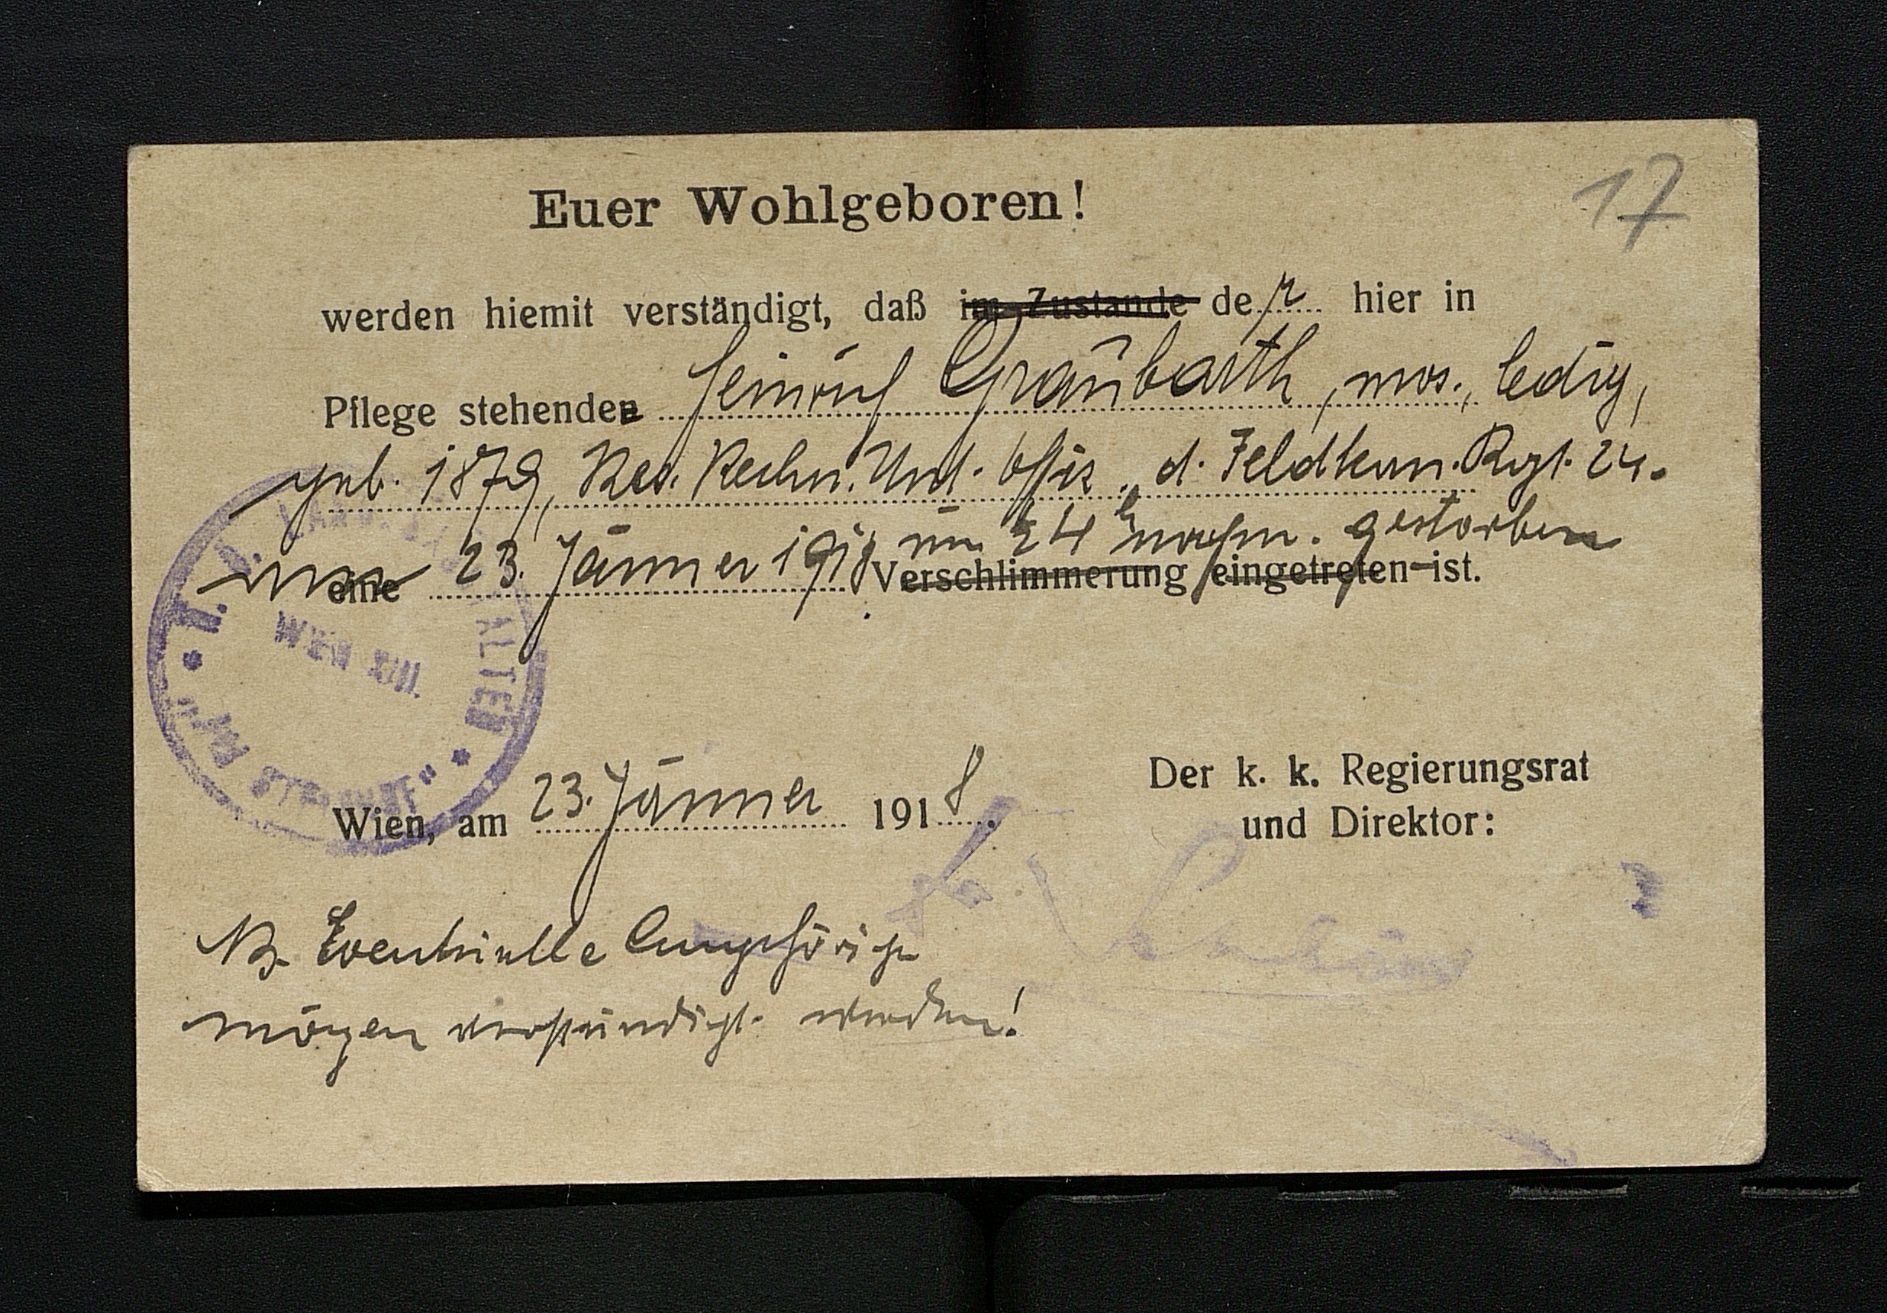 17
Euer Wohlgeboren!
werden hiemit verständigt, daß im Zustande der hier in
Pflege stehenden Heinrich Graubarth, mos., ledig,
geb. 1879, Res. Rechn. Unt. Offiz. d. Feldkan. Rgt. 24.
eine am 23. Jänner 1918 um h nachm. gestorben
Verschlimmerung eingetreten ist.
WIEN XIII.
"AM STEINHOF"
Wien, am 23. Jänner 1918.
Der k. k. Regierungsrat
und Direktor:
NB. Eventuelle Angehörige
mögen verständigt werden!